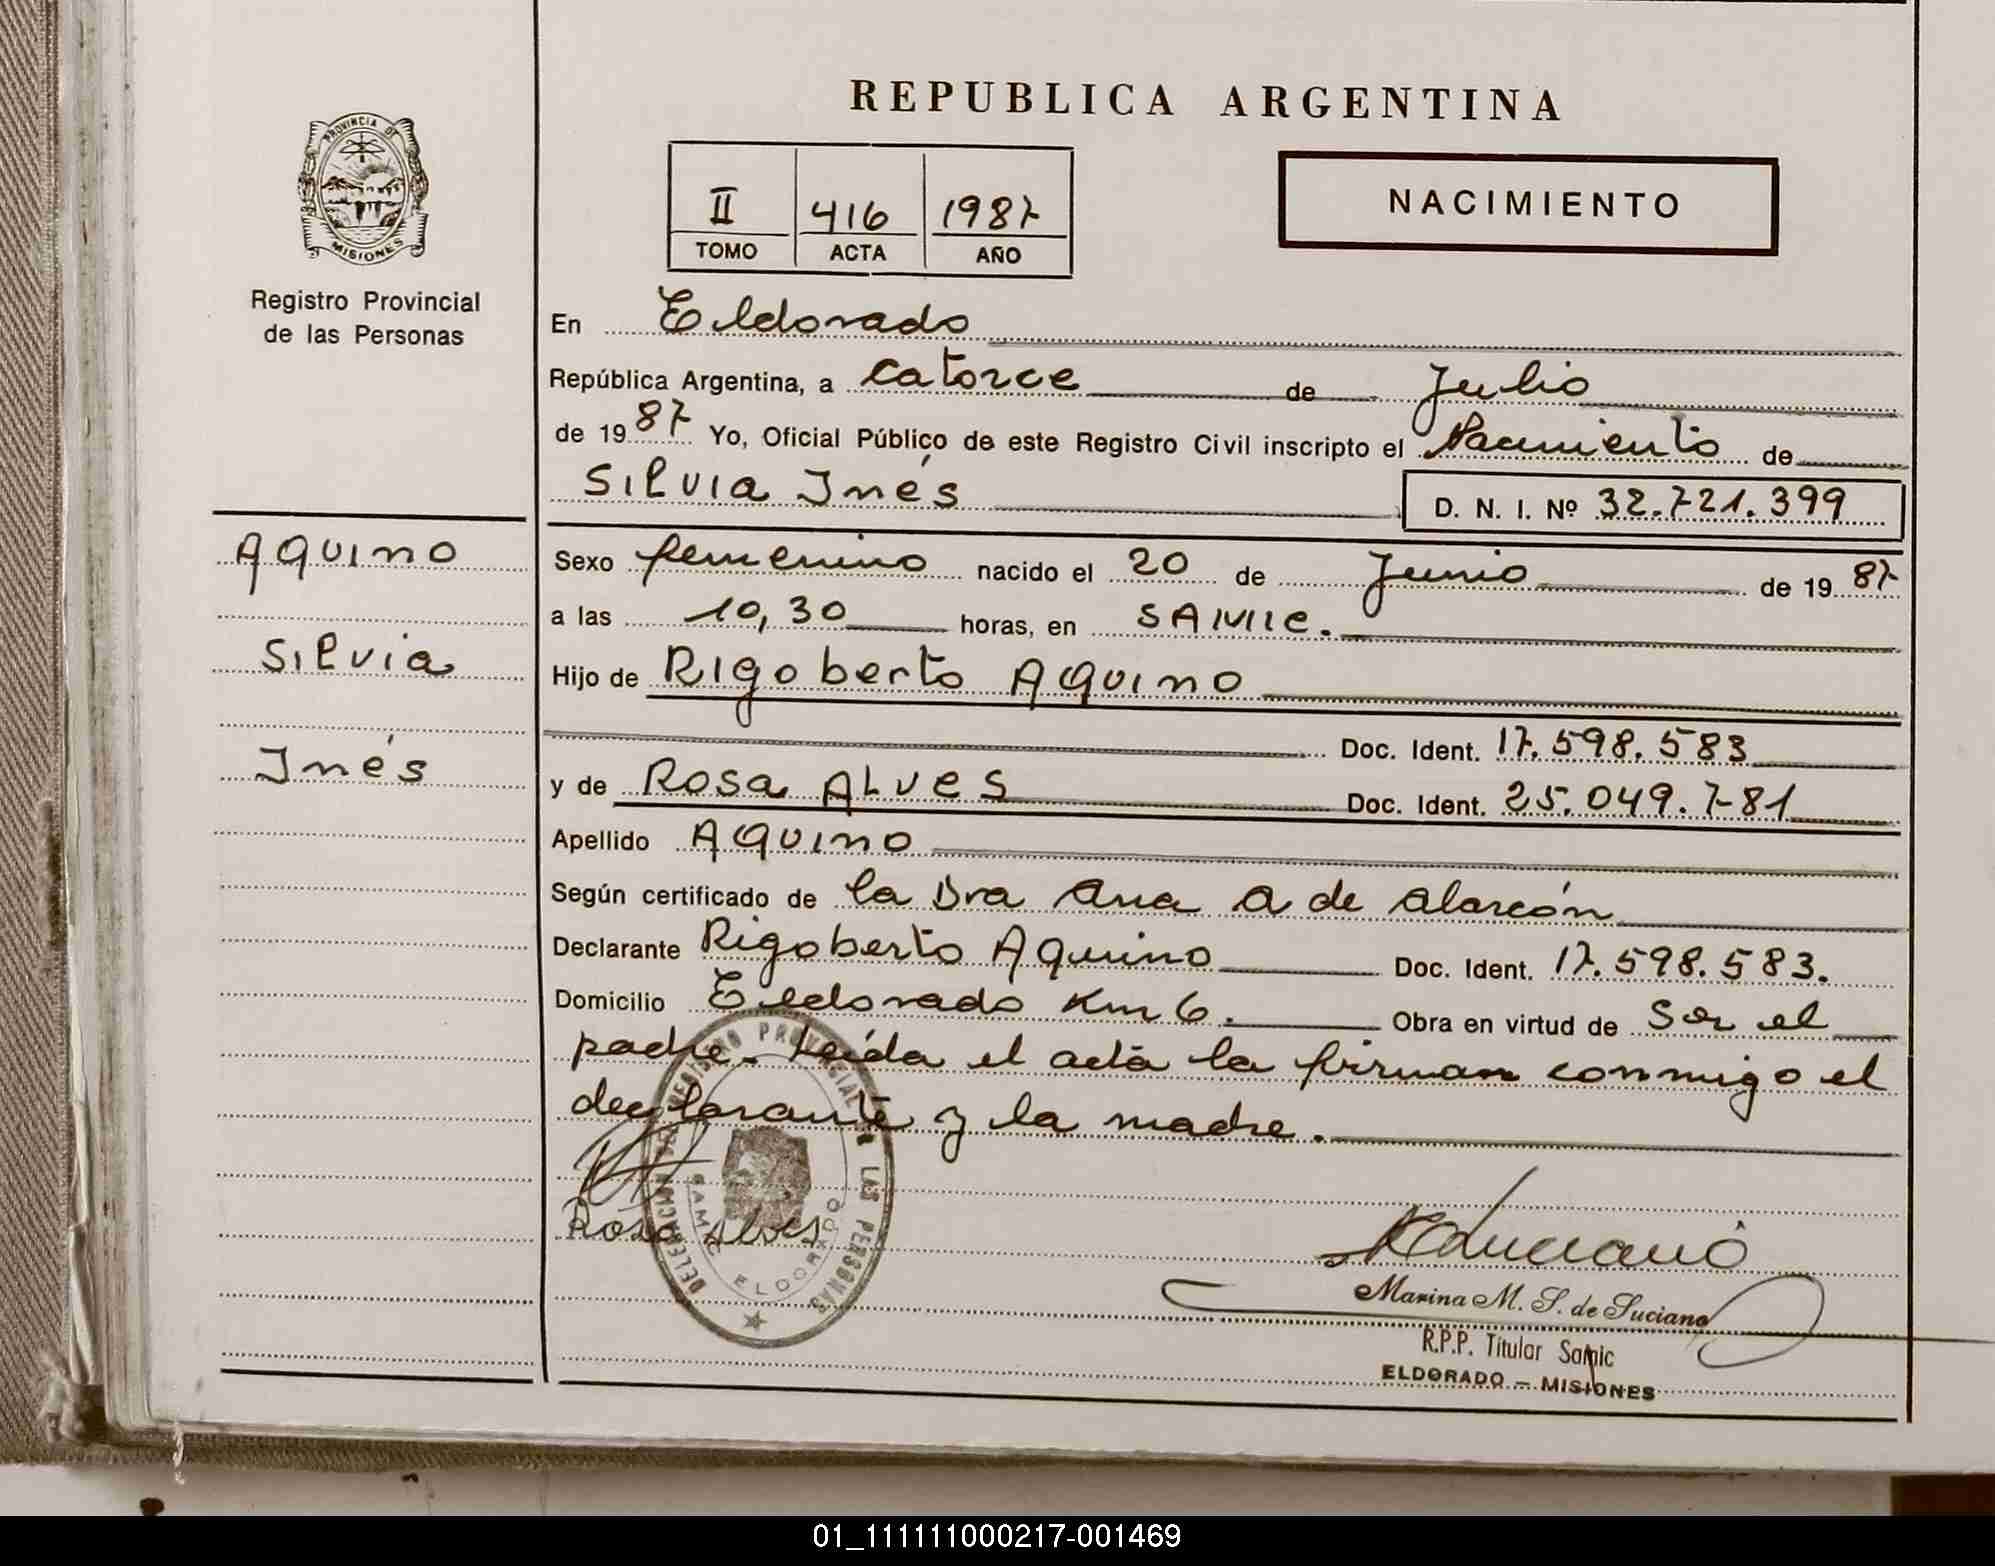 REPUBLICA ARGENTINA
PROVINCIA DE
MISIONES
Registro Provincial
de las Personas
II 416 1987
TOMO ACTA AÑO
NACIMIENTO
En Eldorado
República Argentina, a catorce de Julio
de 1987 Yo, Oficial Público de este Registro Civil inscripto el Nacimiento de
Silvia Inés D. N. I. Nº 32.721.399
Aquino
Silvia
Inés
Sexo femenino nacido el 20 de Junio de 1987
a las 10,30 horas, en SAMIC.
Hijo de Rigoberto Aquino
Doc. Ident. 17.598.583
y de Rosa ALVES Doc. Ident. 25.049.781
Apellido Aquino
Según certificado de la Dra Ana A de Alarcón
Declarante Rigoberto Aquino Doc. Ident. 17.598.583.
Domicilio Eldorado Km 6. Obra en virtud de Ser el
padre. Leída el acta la firman conmigo el
declarante y la madre.
Rosa Alves
DELEGACION REGISTRO PROVINCIAL DE LAS PERSONAS
SAMIC ELDORADO
Marina M. S. de Suciano
R.P.P. Titular Samic
ELDORADO - MISIONES
01_111111000217-001469